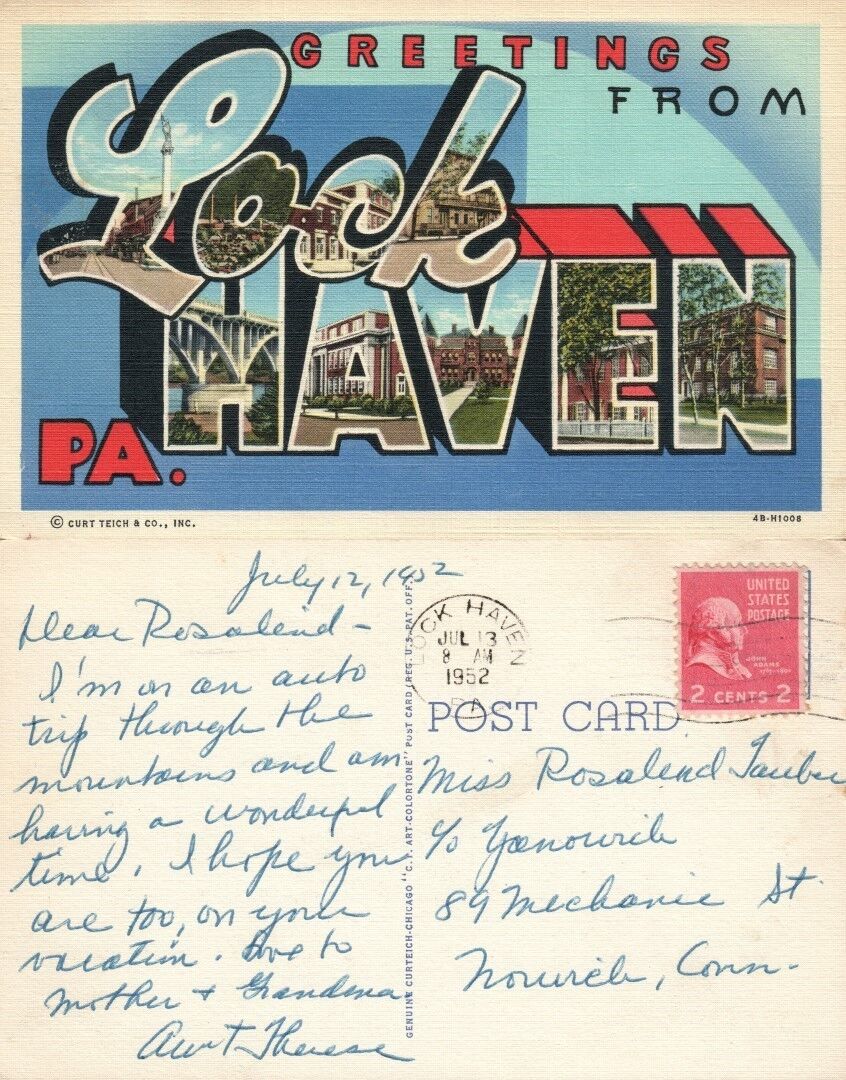 GREETINGS
FROM
Lock
HAVEN
PA.
© CURT TEICH & CO., INC.
4B-H1008
July 12, 1952
Dear Rosalend -
I'm on an auto
trip through the
mountains and am
having a wonderful
time. I hope you
are too, on your
vacation. Love to
Mother + Grandma
Aunt Therese
GENUINE CURTEICH-CHICAGO "C.T. ART-COLORTONE" POST CARD (REG. U.S. PAT. OFF.)
LOCK HAVEN
JUL 13
8 AM
1952
PA
UNITED
STATES
POSTAGE
JOHN
ADAMS
1797-1801
2 CENTS 2
POST CARD
Miss Rosalend Tauber
c/o Yanowich
89 Mechanic St.
Norwich, Conn.